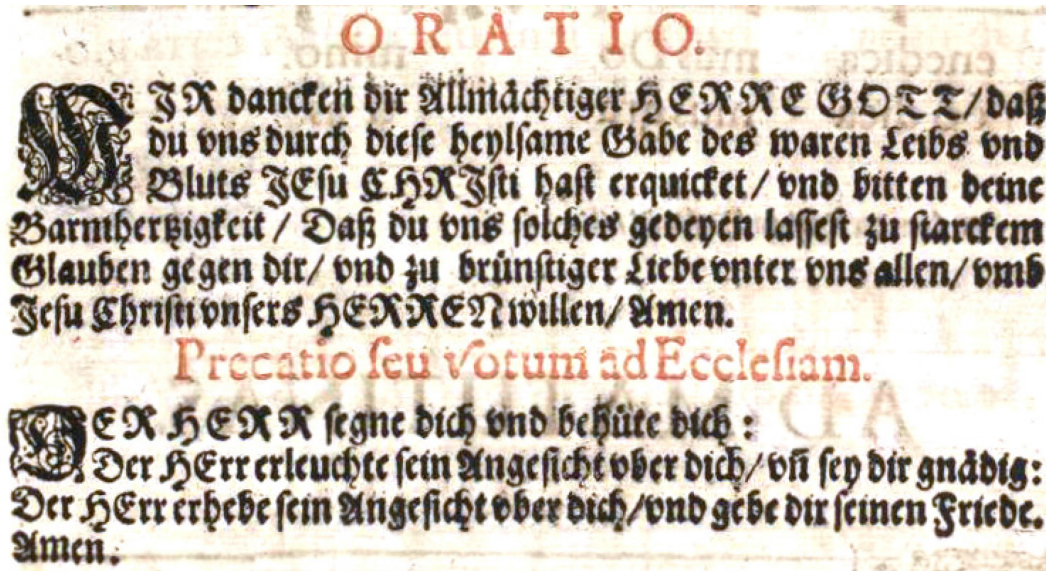 ORATIO.
WIR dancken dir Allmächtiger HERRE GOTT/ daß
du vns durch diese heylsame Gabe des waren Leibs vnd
Bluts JEsu CHRJsti hast erquicket/ vnd bitten deine
Barmhertzigkeit/ Daß du vns solches gedeyen lassest zu starckem
Glauben gegen dir/ vnd zu brünstiger Liebe vnter vns allen/ vmb
Jesu Christi vnsers HERREN willen/ Amen.
Precatio seu Votum ad Ecclesiam.
DER HERR segne dich vnd behüte dich:
Der HErr erleuchte sein Angesicht vber dich/ vñ sey dir gnädig:
Der HErr erhebe sein Angesicht vber dich/ vnd gebe dir seinen Friede.
Amen.